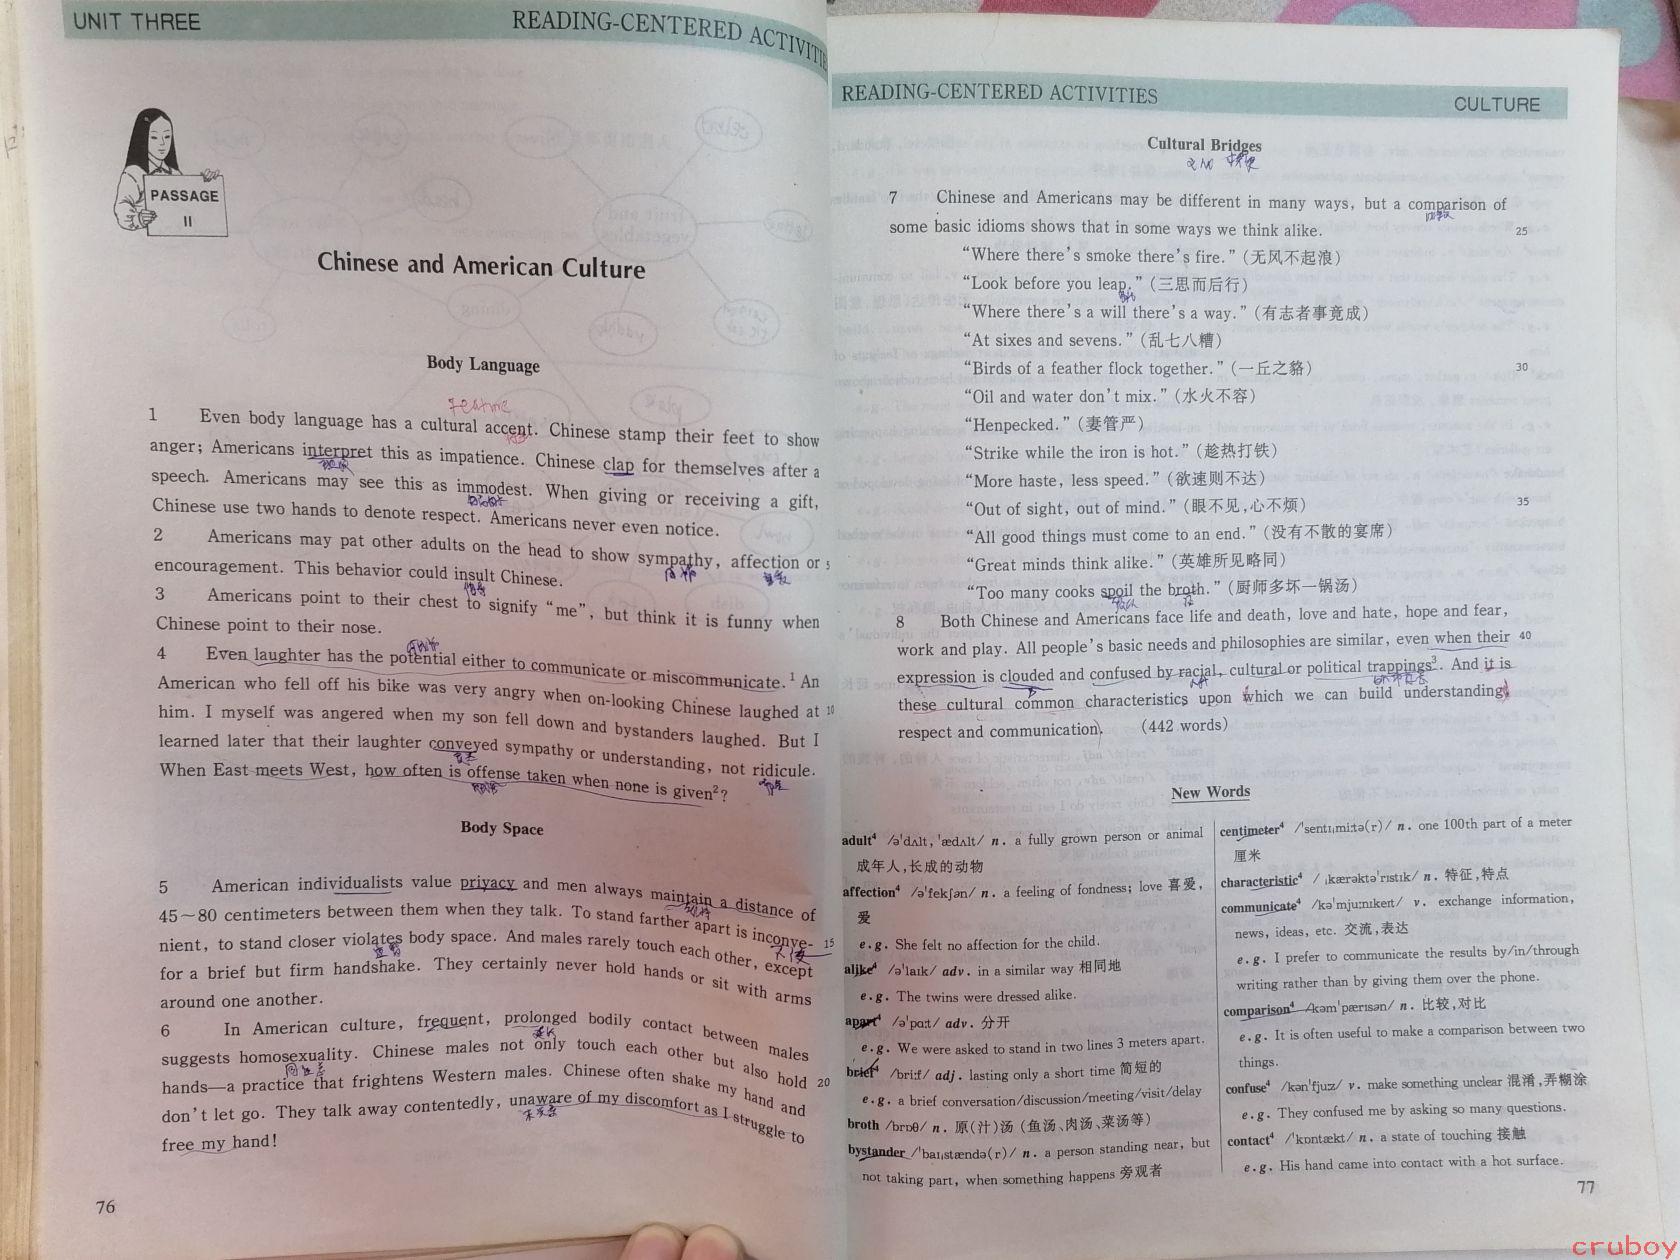 UNIT THREE
READING-CENTERED ACTIVITIE
PASSAGE
II
Chinese and American Culture
Body Language
Feature
1 Even body language has a cultural accent. Chinese stamp their feet to show
anger; Americans interpret this as impatience. Chinese clap for themselves after a
speech. Americans may see this as immodest. When giving or receiving a gift,
Chinese use two hands to denote respect. Americans never even notice.
2 Americans may pat other adults on the head to show sympathy, affection or 5
encouragement. This behavior could insult Chinese.
3 Americans point to their chest to signify “me”, but think it is funny when
Chinese point to their nose.
4 Even laughter has the potential either to communicate or miscommunicate.1 An
American who fell off his bike was very angry when on-looking Chinese laughed at 10
him. I myself was angered when my son fell down and bystanders laughed. But I
learned later that their laughter conveyed sympathy or understanding, not ridicule.
When East meets West, how often is offense taken when none is given2?
Body Space
5 American individualists value privacy and men always maintain a distance of
45～80 centimeters between them when they talk. To stand farther apart is inconve-
nient, to stand closer violates body space. And males rarely touch each other, except 15
for a brief but firm handshake. They certainly never hold hands or sit with arms
around one another.
6 In American culture, frequent, prolonged bodily contact between males
suggests homosexuality. Chinese males not only touch each other but also hold
hands—a practice that frightens Western males. Chinese often shake my hand and 20
don't let go. They talk away contentedly, unaware of my discomfort as I struggle to
free my hand!
76
READING-CENTERED ACTIVITIES
CULTURE
Cultural Bridges
7 Chinese and Americans may be different in many ways, but a comparison of
some basic idioms shows that in some ways we think alike. 25
“Where there's smoke there's fire.”(无风不起浪)
“Look before you leap.”(三思而后行)
“Where there's a will there's a way.”(有志者事竟成)
“At sixes and sevens.”(乱七八糟)
“Birds of a feather flock together.”(一丘之貉) 30
“Oil and water don't mix.”(水火不容)
“Henpecked.”(妻管严)
“Strike while the iron is hot.”(趁热打铁)
“More haste, less speed.”(欲速则不达)
“Out of sight, out of mind.”(眼不见,心不烦) 35
“All good things must come to an end.”(没有不散的宴席)
“Great minds think alike.”(英雄所见略同)
“Too many cooks spoil the broth.”(厨师多坏一锅汤)
8 Both Chinese and Americans face life and death, love and hate, hope and fear,
work and play. All people's basic needs and philosophies are similar, even when their 40
expression is clouded and confused by racial, cultural or political trappings3. And it is
these cultural common characteristics upon which we can build understanding,
respect and communication. (442 words)
New Words
adult4 /ə'dʌlt, 'ædʌlt/ n. a fully grown person or animal
成年人,长成的动物
affection4 /ə'fekʃən/ n. a feeling of fondness; love 喜爱,
爱
e.g. She felt no affection for the child.
alike4 /ə'laɪk/ adv. in a similar way 相同地
e.g. The twins were dressed alike.
apart4 /ə'pɑːt/ adv. 分开
e.g. We were asked to stand in two lines 3 meters apart.
brief4 /briːf/ adj. lasting only a short time 简短的
e.g. a brief conversation/discussion/meeting/visit/delay
broth /brɒθ/ n. 原(汁)汤 (鱼汤、肉汤、菜汤等)
bystander /'baɪˌstændə(r)/ n. a person standing near, but
not taking part, when something happens 旁观者
centimeter4 /'sentɪˌmiːtə(r)/ n. one 100th part of a meter
厘米
characteristic4 /ˌkærəktə'rɪstɪk/ n. 特征,特点
communicate4 /kə'mjuːnɪkeɪt/ v. exchange information,
news, ideas, etc. 交流,表达
e.g. I prefer to communicate the results by/in/through
writing rather than by giving them over the phone.
comparison4 /kəm'pærɪsən/ n. 比较,对比
e.g. It is often useful to make a comparison between two
things.
confuse4 /kən'fjuːz/ v. make something unclear 混淆,弄糊涂
e.g. They confused me by asking so many questions.
contact4 /'kɒntækt/ n. a state of touching 接触
e.g. His hand came into contact with a hot surface.
77
cruboy